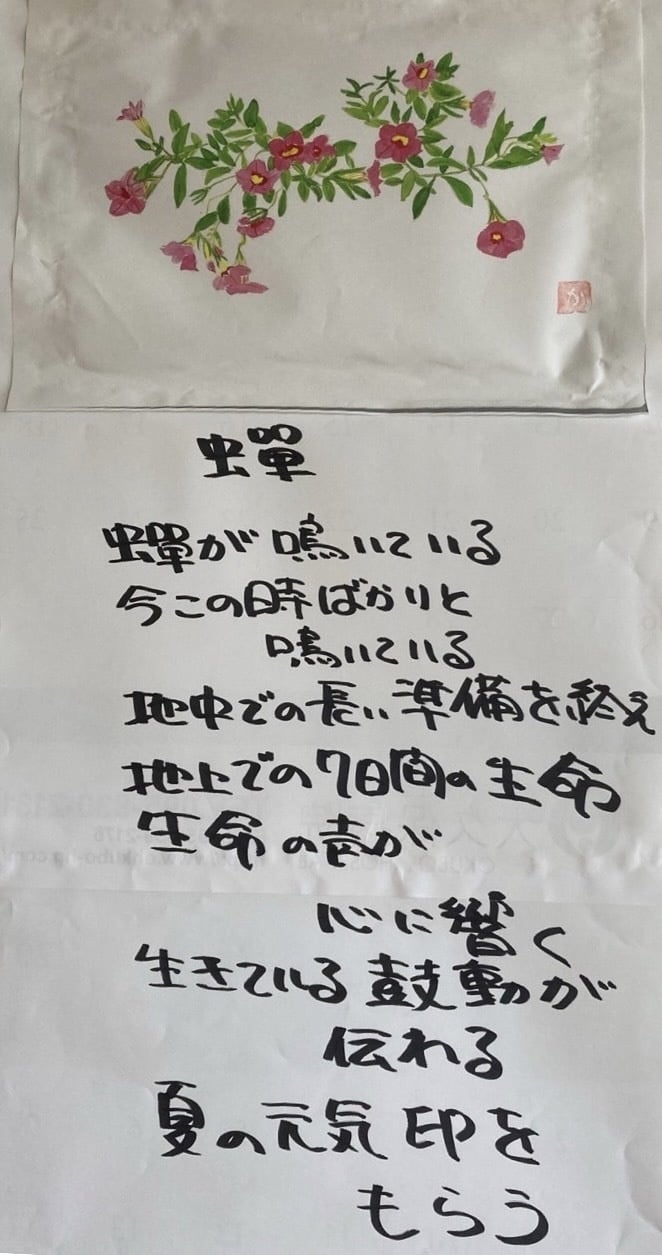 蟬
蟬が鳴いている
今この時ばかりと
鳴いている
地中での長い準備を終え
地上での7日間の生命
生命の声が
心に響く
生きている鼓動が
伝わる
夏の元気印を
もらう